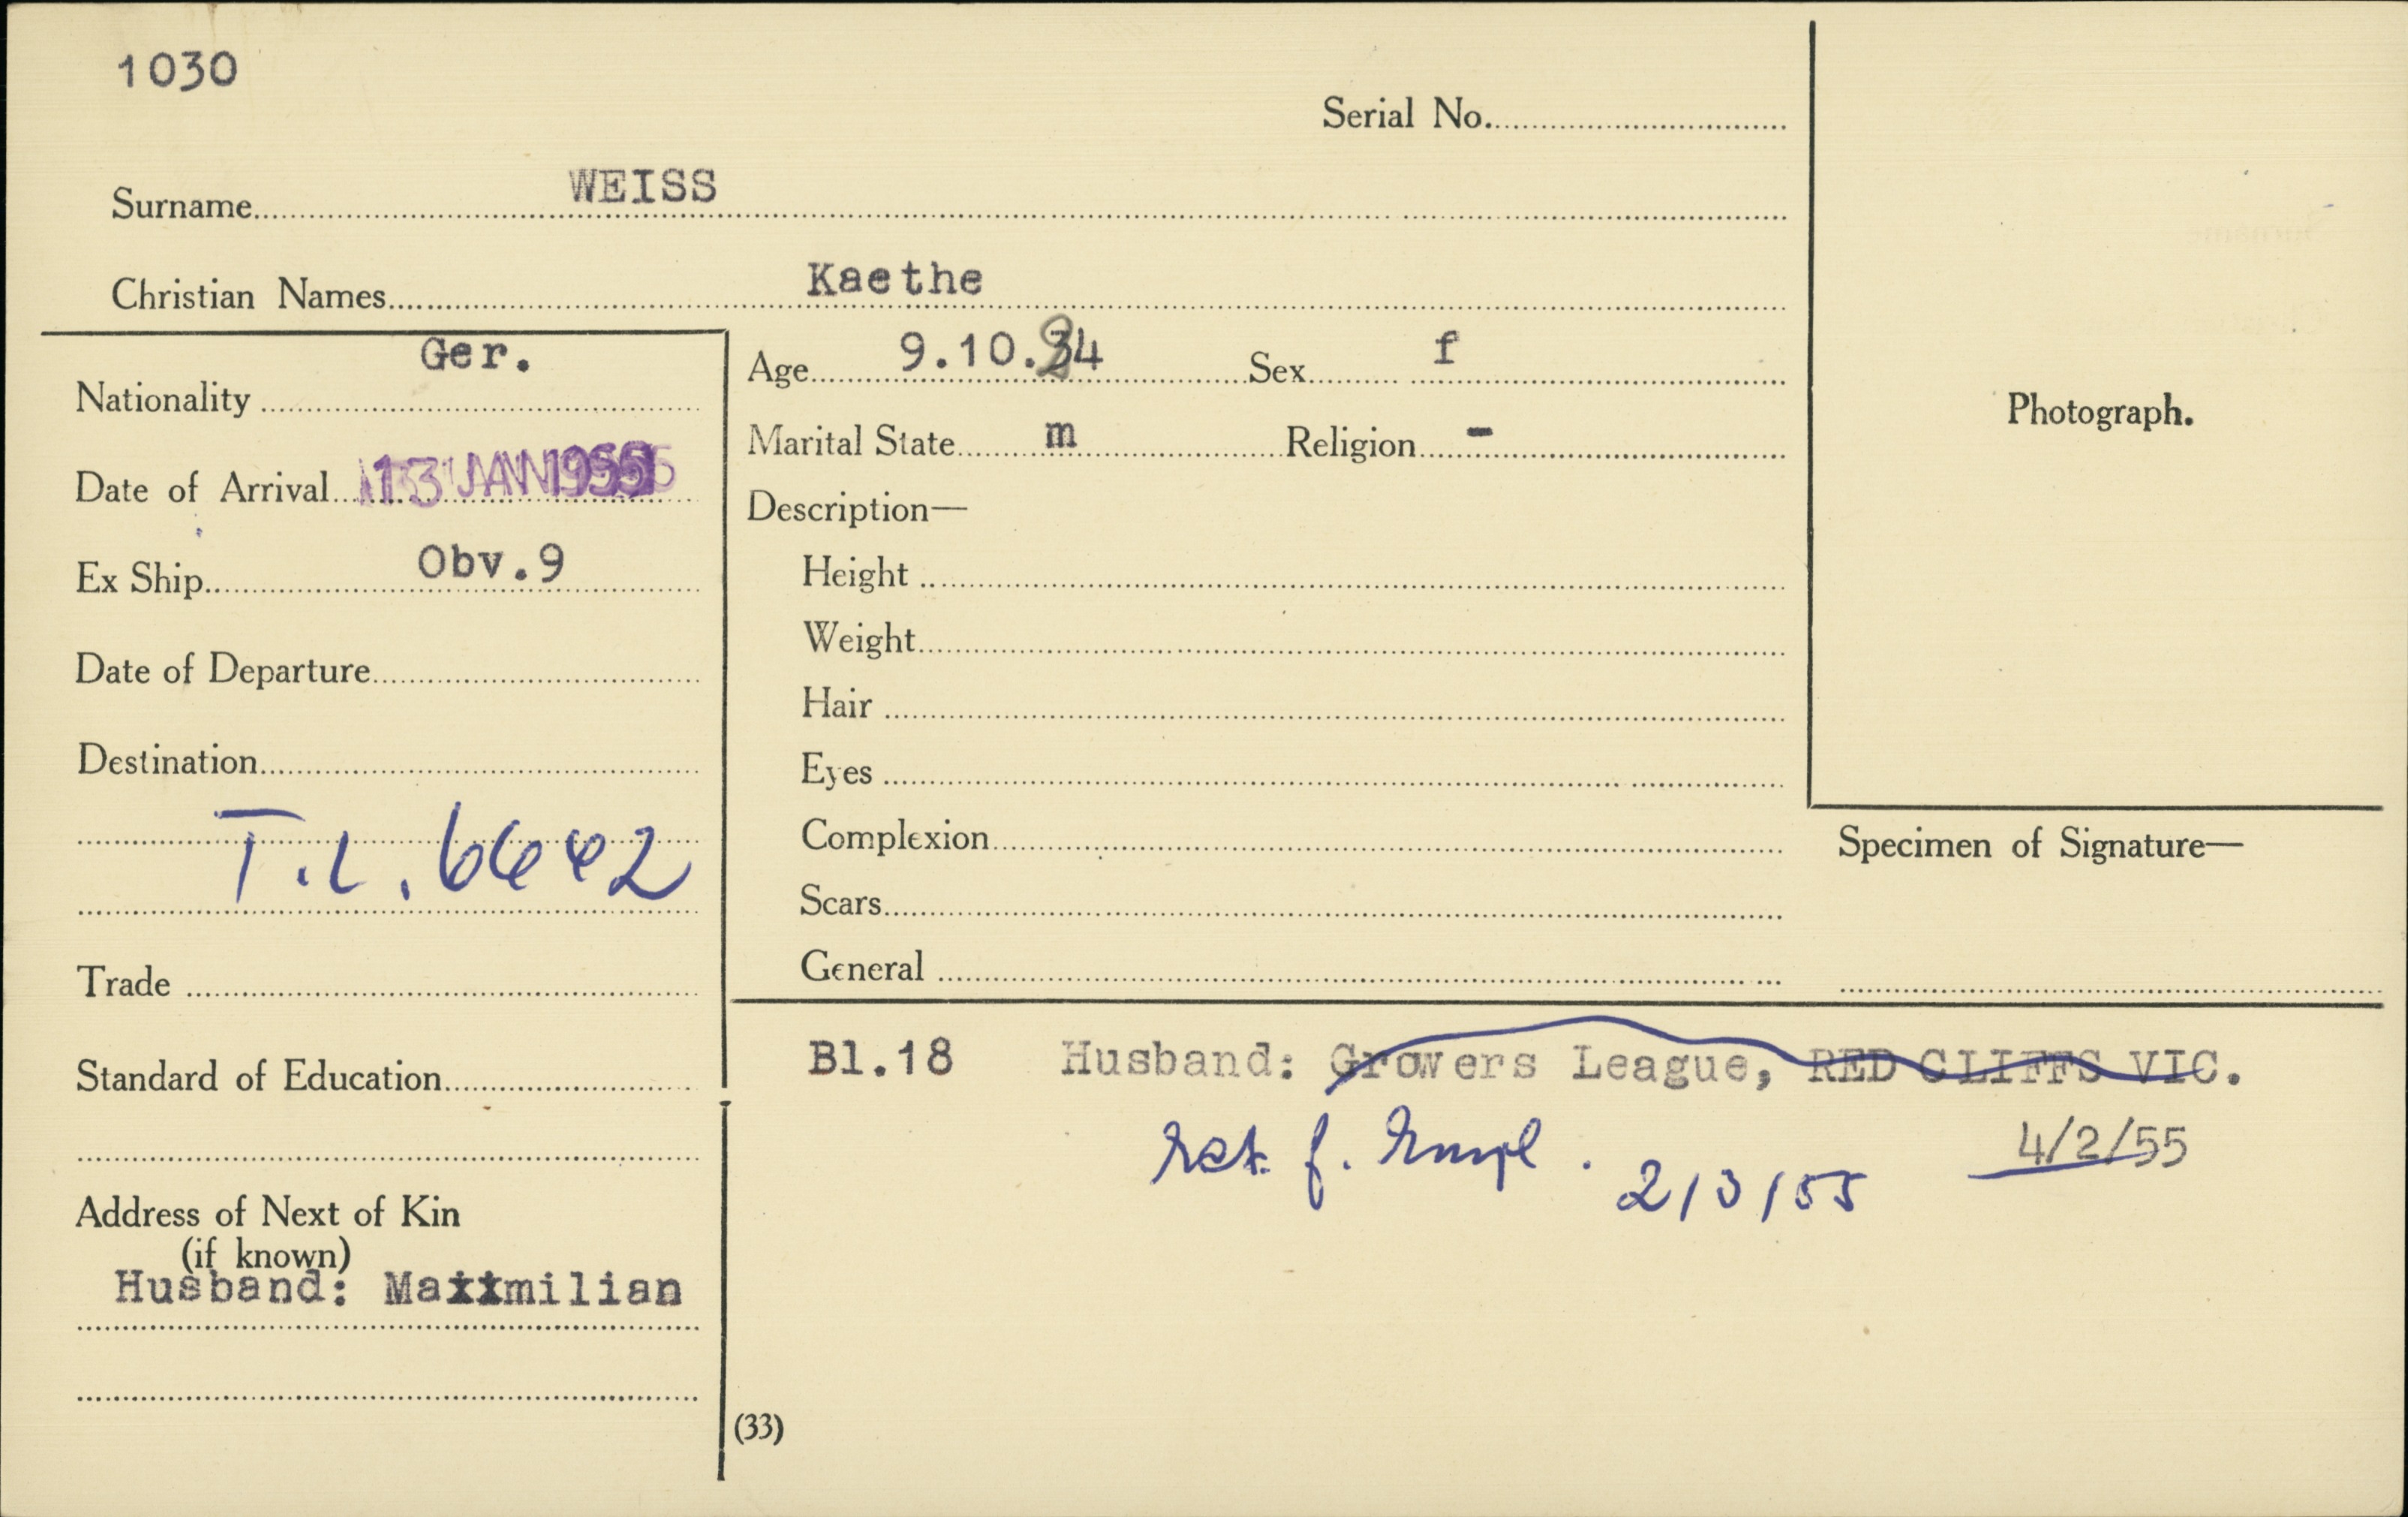 1030
Serial No.
Surname WEISS
Christian Names Kaethe
Nationality Ger.
Date of Arrival 13 JAN 1955
Ex Ship Obv.9
Date of Departure
Destination
T.L. 6642
Trade
Standard of Education
Address of Next of Kin
(if known)
Husband: Maximilian
Age 9.10.24 Sex f
Marital State m Religion -
Description—
Height
Weight
Hair
Eyes
Complexion
Scars
General
Photograph.
Specimen of Signature—
Bl.18 Husband: Growers League, RED CLIFFS VIC.
4/2/55
f. Empl. 2/3/55
(33)